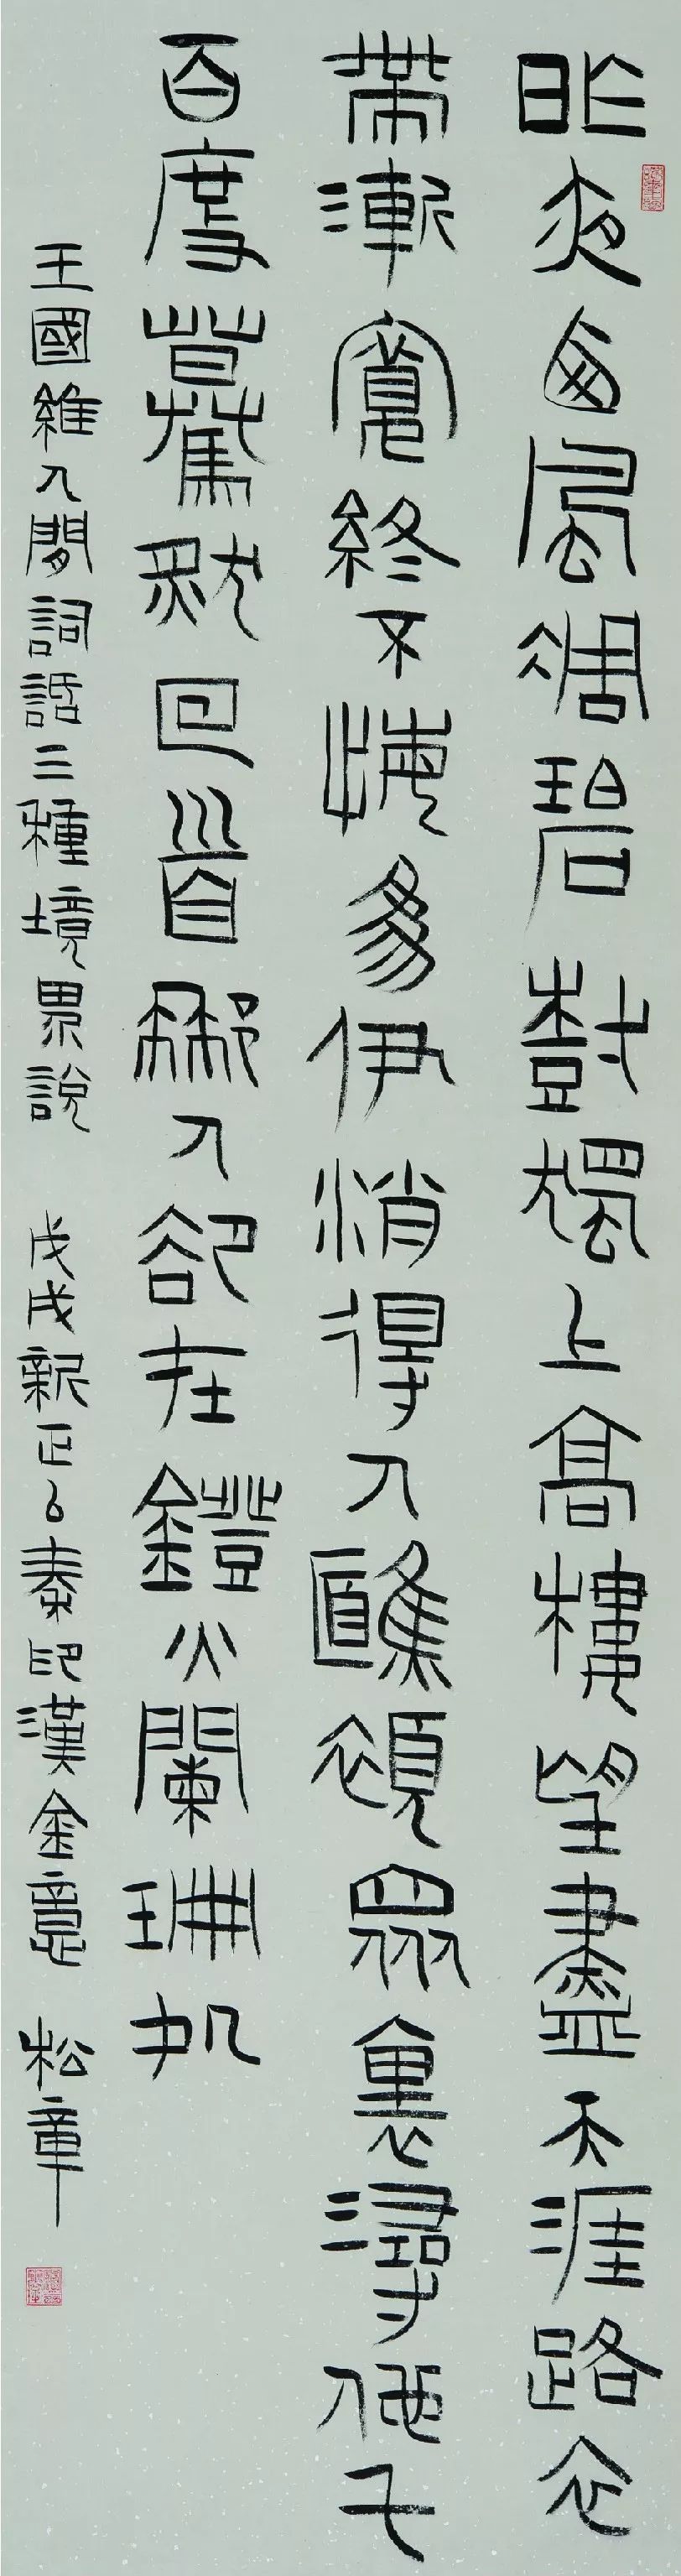 昨夜西風凋碧樹獨上高樓望盡天涯路衣
帶漸寬終不悔爲伊消得人顦顇眾裏尋他千
百度驀然回首那人卻在鐙火闌珊処
王國維人間詞話三種境界說 戊戌新正以秦印漢金意 松章